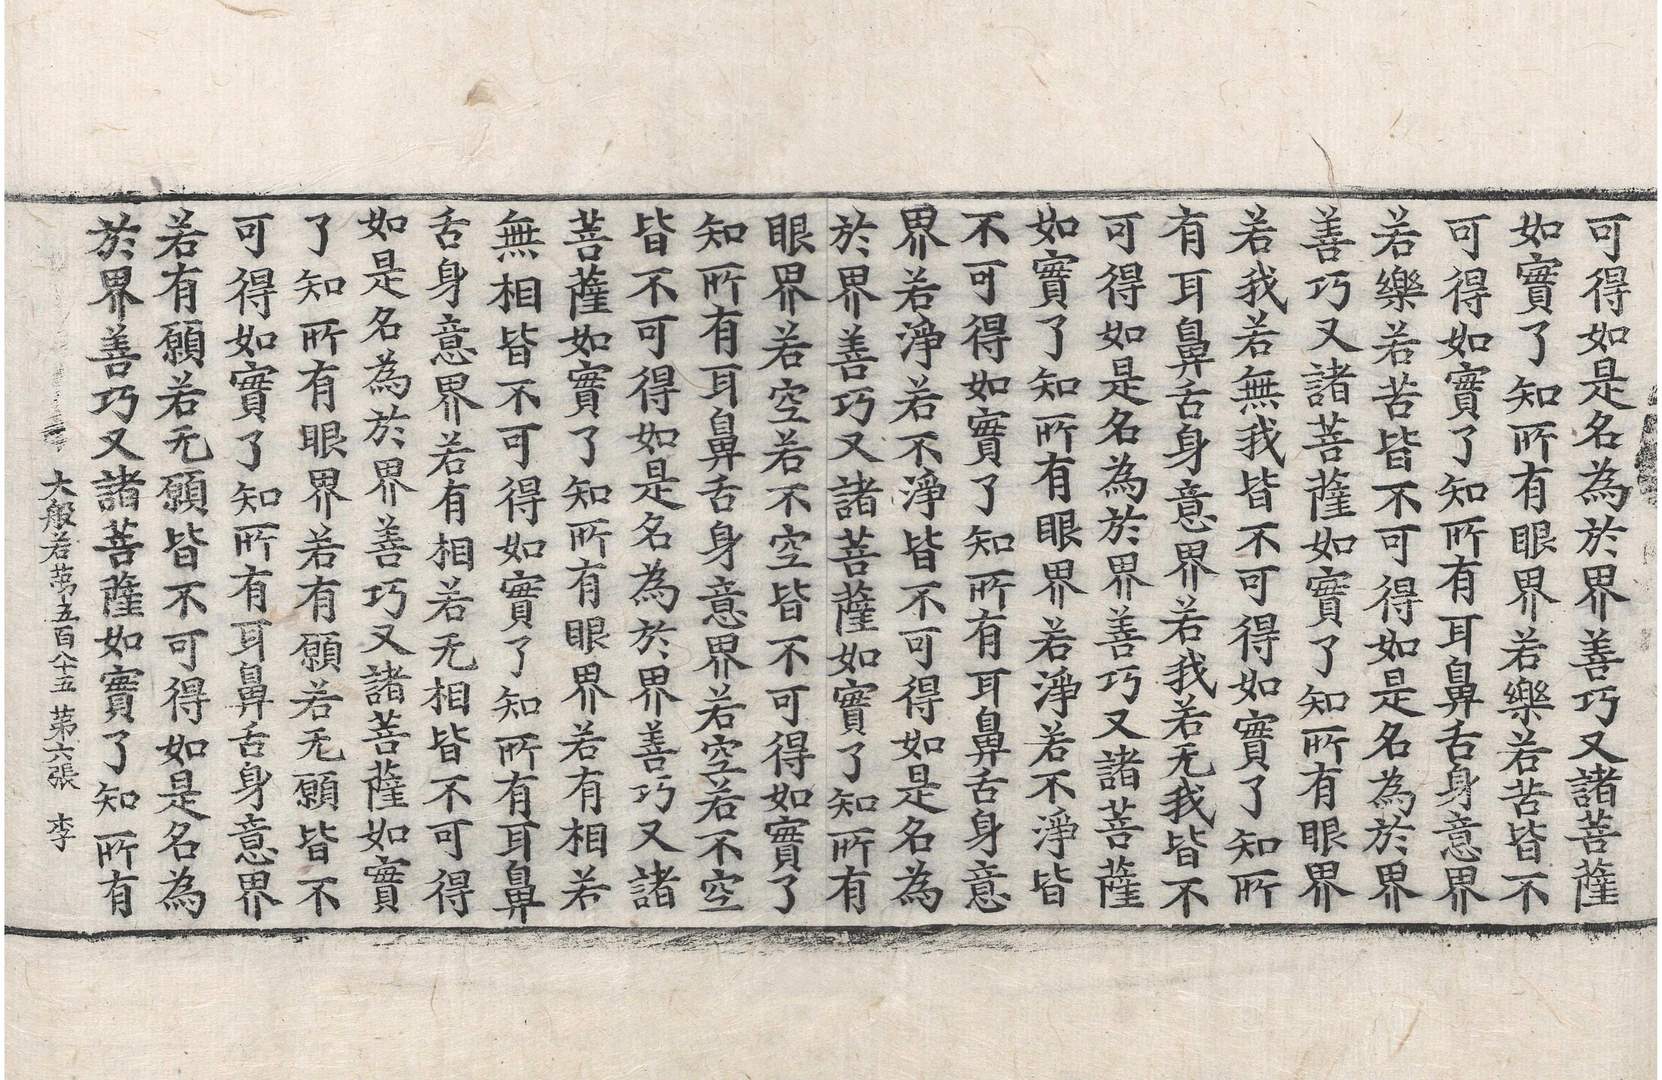 可得如是名為於界善巧又諸菩薩
如實了知所有眼界若樂若苦皆不
可得如實了知所有耳鼻舌身意界
若樂若苦皆不可得如是名為於界
善巧又諸菩薩如實了知所有眼界
若我若無我皆不可得如實了知所
有耳鼻舌身意界若我若无我皆不
可得如是名為於界善巧又諸菩薩
如實了知所有眼界若淨若不淨皆
不可得如實了知所有耳鼻舌身意
界若淨若不淨皆不可得如是名為
於界善巧又諸菩薩如實了知所有
眼界若空若不空皆不可得如實了
知所有耳鼻舌身意界若空若不空
皆不可得如是名為於界善巧又諸
菩薩如實了知所有眼界若有相若
無相皆不可得如實了知所有耳鼻
舌身意界若有相若无相皆不可得
如是名為於界善巧又諸菩薩如實
了知所有眼界若有願若无願皆不
可得如實了知所有耳鼻舌身意界
若有願若无願皆不可得如是名為
於界善巧又諸菩薩如實了知所有
大般若第五百八十五 第六張 李